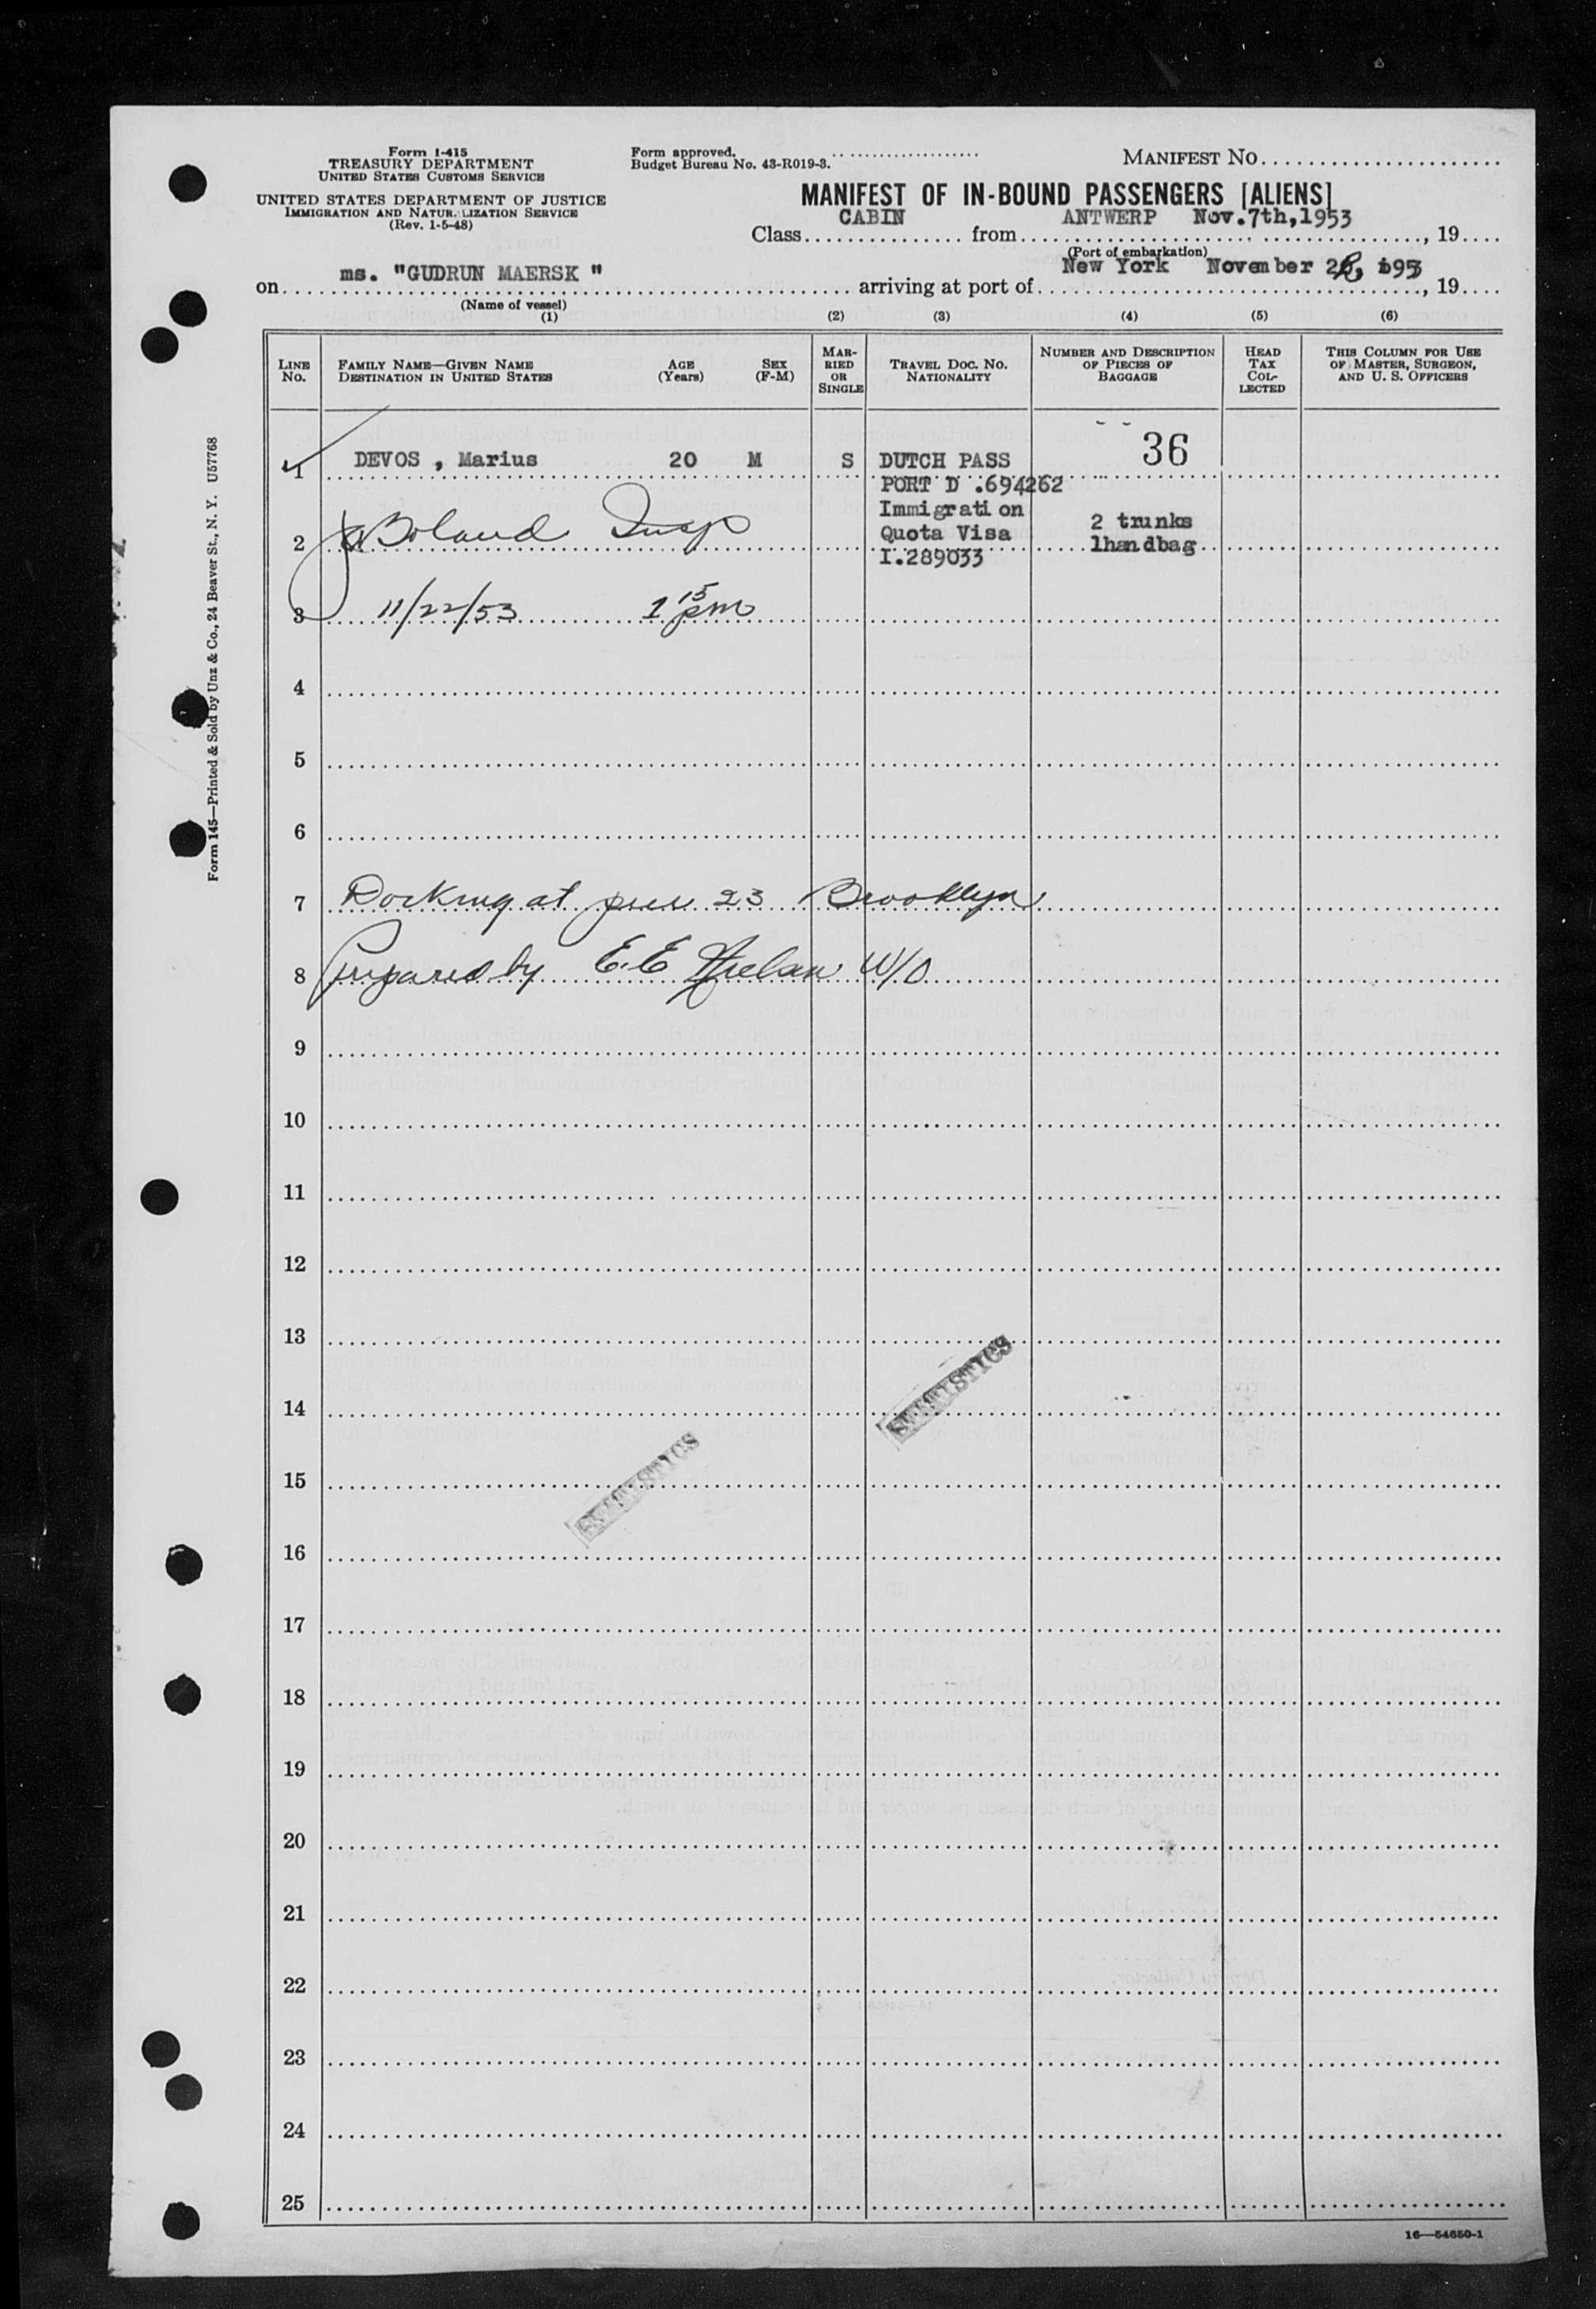 Form I-415
TREASURY DEPARTMENT
UNITED STATES CUSTOMS SERVICE
UNITED STATES DEPARTMENT OF JUSTICE
IMMIGRATION AND NATURALIZATION SERVICE
(Rev. 1-5-48)
Form approved.
Budget Bureau No. 43-R019-3.
MANIFEST NO.
MANIFEST OF IN-BOUND PASSENGERS [ALIENS]
Class CABIN from ANTWERP Nov.7th,1953, 19
(Port of embarkation)
on ms. "GUDRUN MAERSK" arriving at port of New York November 1953, 19
(Name of vessel)
(1) (2) (3) (4) (5) (6)
LINE NO.
FAMILY NAME—GIVEN NAME
DESTINATION IN UNITED STATES
AGE (Years)
SEX (F-M)
MARRIED OR SINGLE
TRAVEL DOC. NO. NATIONALITY
NUMBER AND DESCRIPTION OF PIECES OF BAGGAGE
HEAD TAX COLLECTED
THIS COLUMN FOR USE OF MASTER, SURGEON, AND U. S. OFFICERS
36
1 DEVOS , Marius 20 M S DUTCH PASS
PORT D .694262
Immigration
Quota Visa 2 trunks
2 Boland Insp 1handbag
I.289033
3 11/22/53 1 15 pm
4
5
6
7 Docking at pier 23 Brooklyn
8 Prepared by E.E W/O
9
10
11
12
13
STATISTICS
14
15
STATISTICS
16
17
18
19
20
21
22
23
24
25
16—54650-1
Form 145—Printed & Sold by Unz & Co., 24 Beaver St., N. Y. U57768